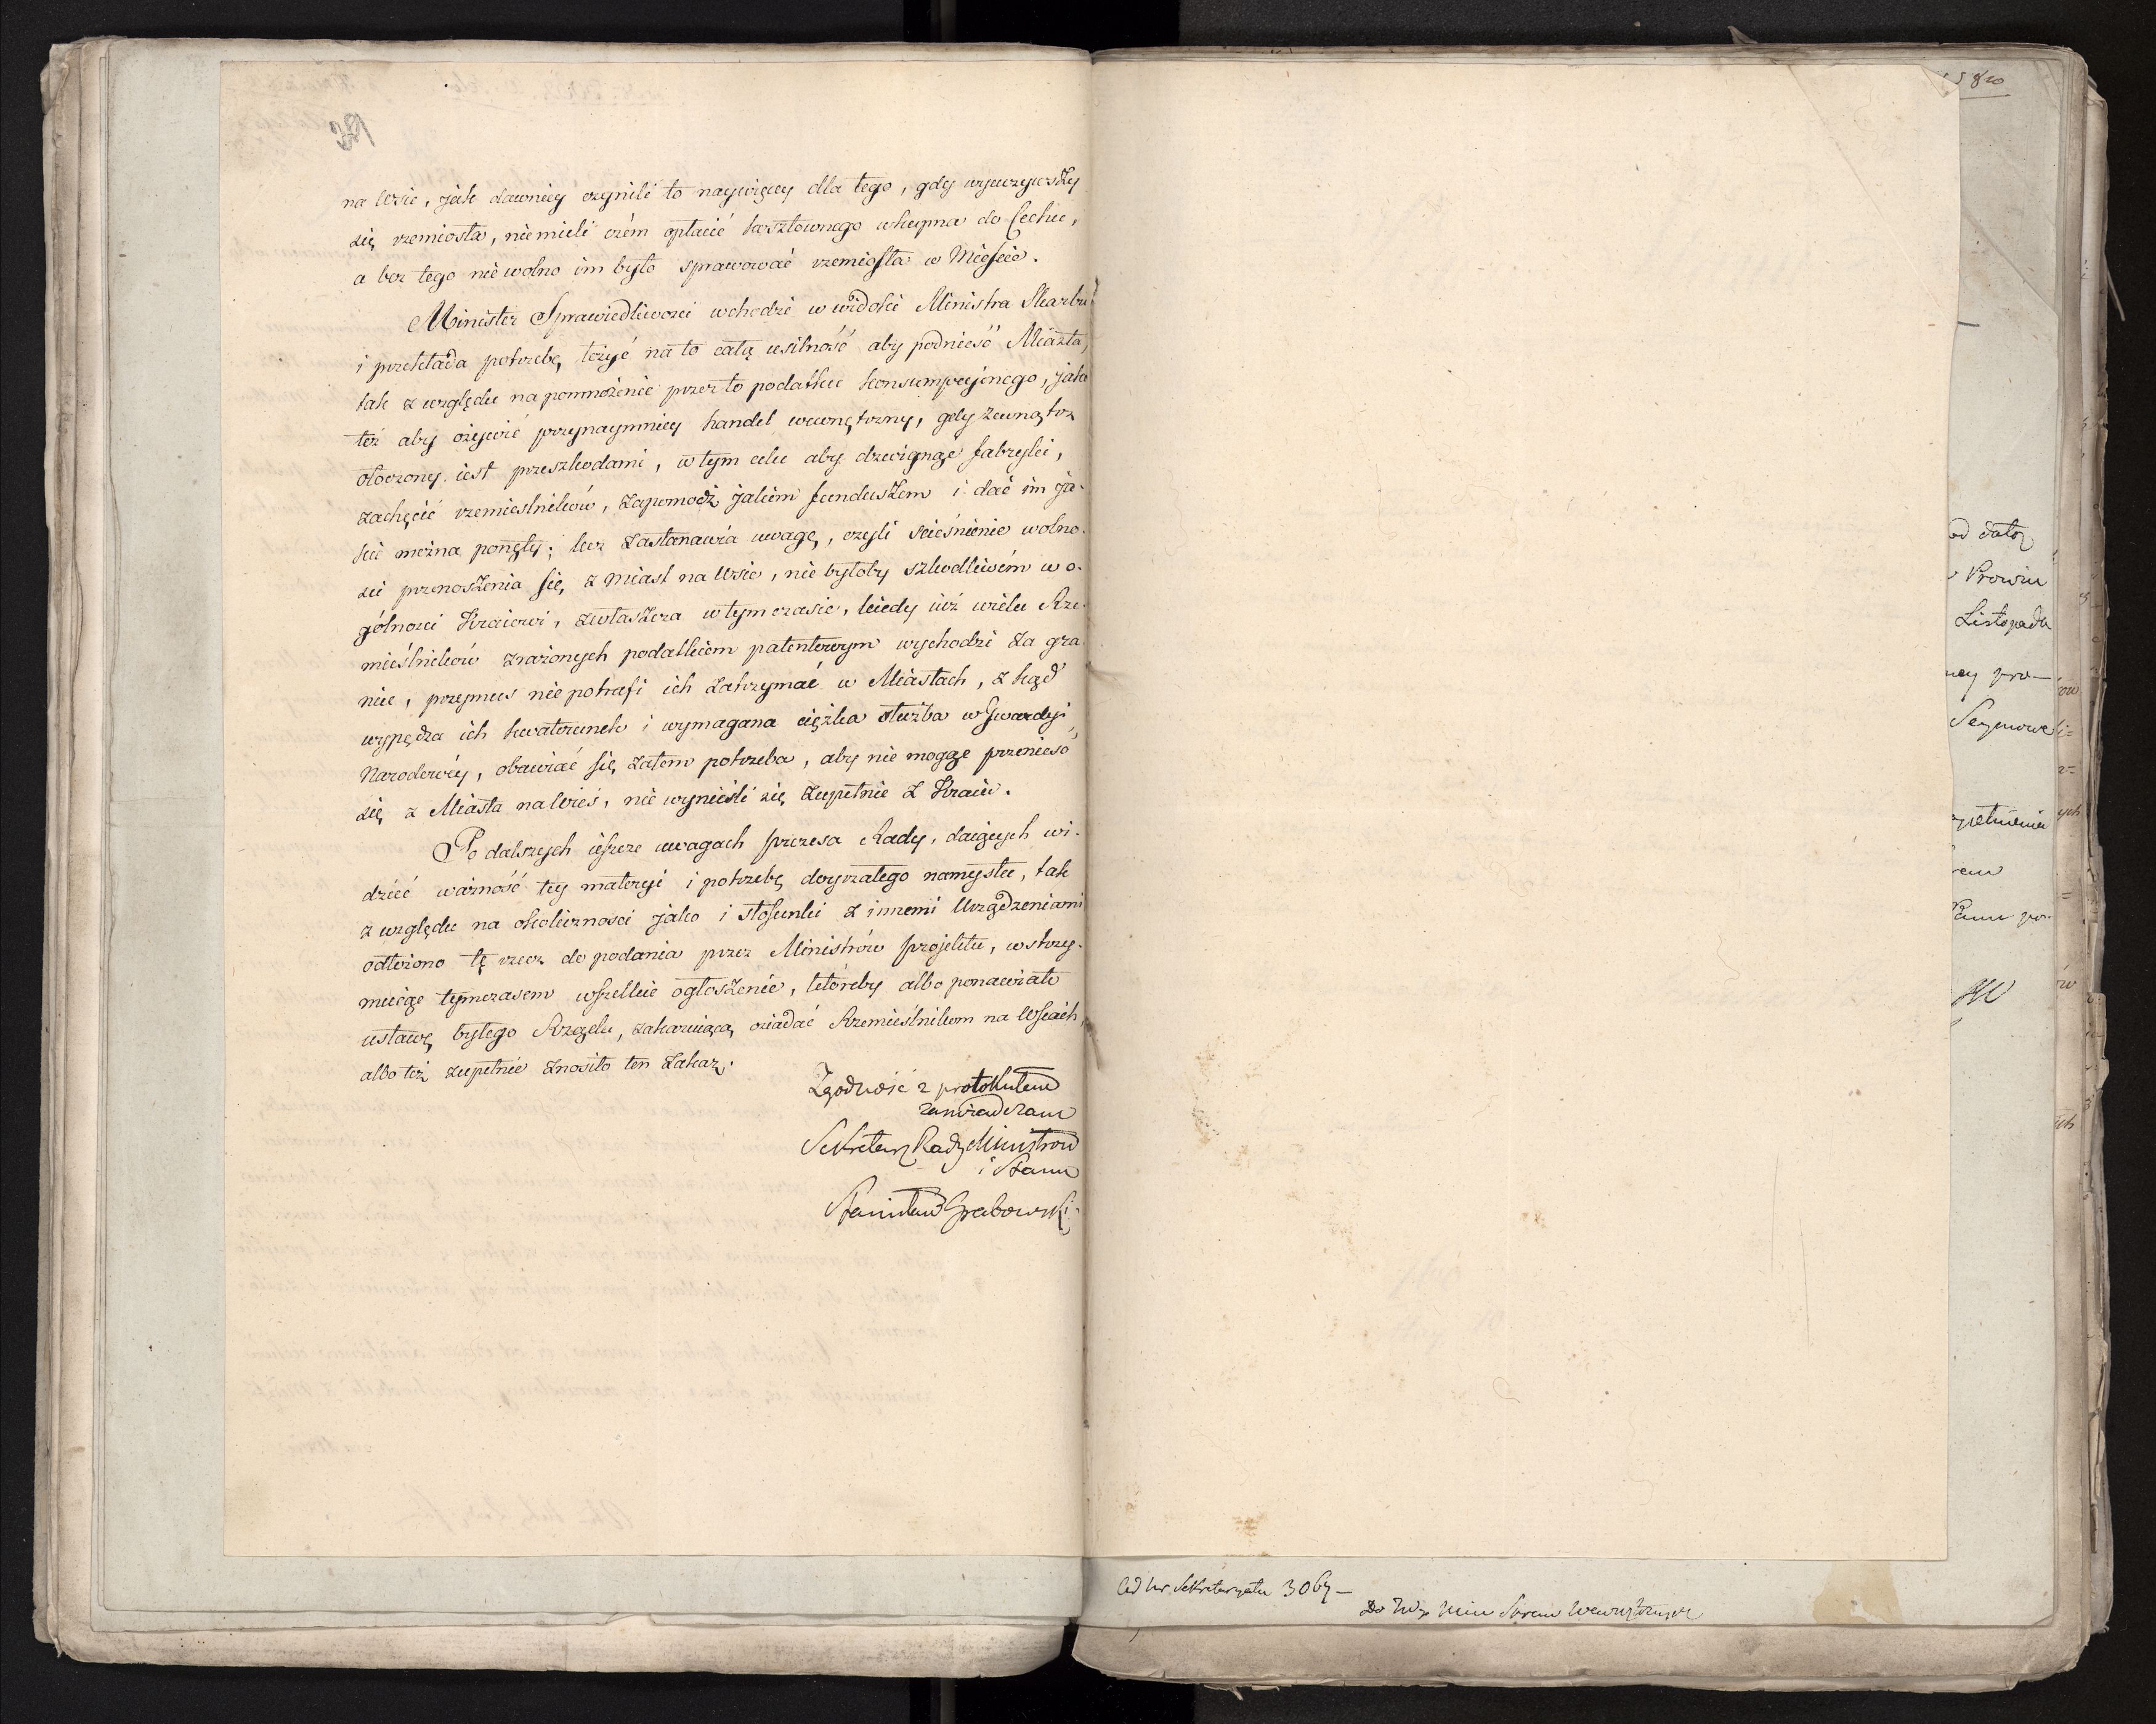 na Wsie, jak dawniey czynili to naywięcey dla tego, gdy wyuczywszy
się rzemiosła, nie mieli czém opłacić kosztownego wkupna do Cechu,
a bez tego nie wolno im było sprawować rzemiosła w Mieście.
Minister Sprawiedliwości wchodzi w widoki Ministra Skarbu
i przekłada potrzebę łożyć na to całą usilność aby podnieść Miasta,
tak z względu na pomnożenie przez to podatku konsumpcyjnego, jako
też aby ożywić przynaymniey handel wewnętrzny, gdy zewnątrz
otoczony iest przeszkodami, w tym celu aby dzwignąć fabryki,
zachęcić rzemieslników, zapomodz jakiém funduszem i dać im ja-
kie można ponęty; lecz zastanawia uwagę, czyli scieśnienie wolno-
ści przenoszenia się z miast na Wsie, nie byłoby szkodliwém w o-
gólności Kraiowi, zwłaszcza w tym czasie, kiedy iuż wielu Rze-
mieślników zrażonych podatkiem patentowym wychodzi za gra-
nice, przymus nie potrafi ich zatrzymać w Miastach, z kąd
wypędza ich kwaterunek i wymagana ciężka służba w Gwardyi
Narodowéy, obawiać się zatem potrzeba, aby nie mogąc przenieść
się z Miasta na Wieś, nie wynieśli się zupełnie z Kraiu.
Po dalszych ieszcze uwagach Prezesa Rady, daiących wi-
dzieć ważność tey materyi i potrzebę doyrzałego namysłu, tak
z względu na okoliczności jako i stosunki z innemi Urządzeniami
odłożono tę rzecz do podania przez Ministrów projektu, wstrzy-
muiąc tymczasem wszelkie ogłoszenie, któreby albo ponawiało
ustawę byłego Rządu, zakazuiącą osiadać Rzemieślnikom na Wsiach,
albo też zupełnie znosiło ten zakaz.
Zgodność z protokułem
zaświadczam
Sekretarz Rady Ministrów
i Stanu
Stanisław Grabowski
Listopada
Seymowe
Ad Nr Sekretaryatu 3067 –
Do Wgo Min Spraw Wewnętrznych